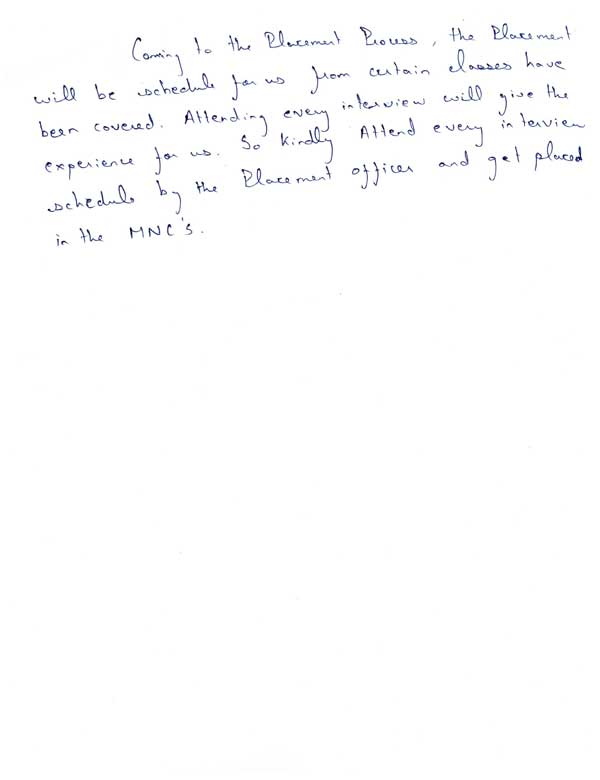 Coming to the Placement Process, the Placement
will be schedule for us from certain classes have
been covered. Attending every interview will give the
experience for us. So kindly Attend every interview
schedule by the Placement officer and get placed
in the MNC's.